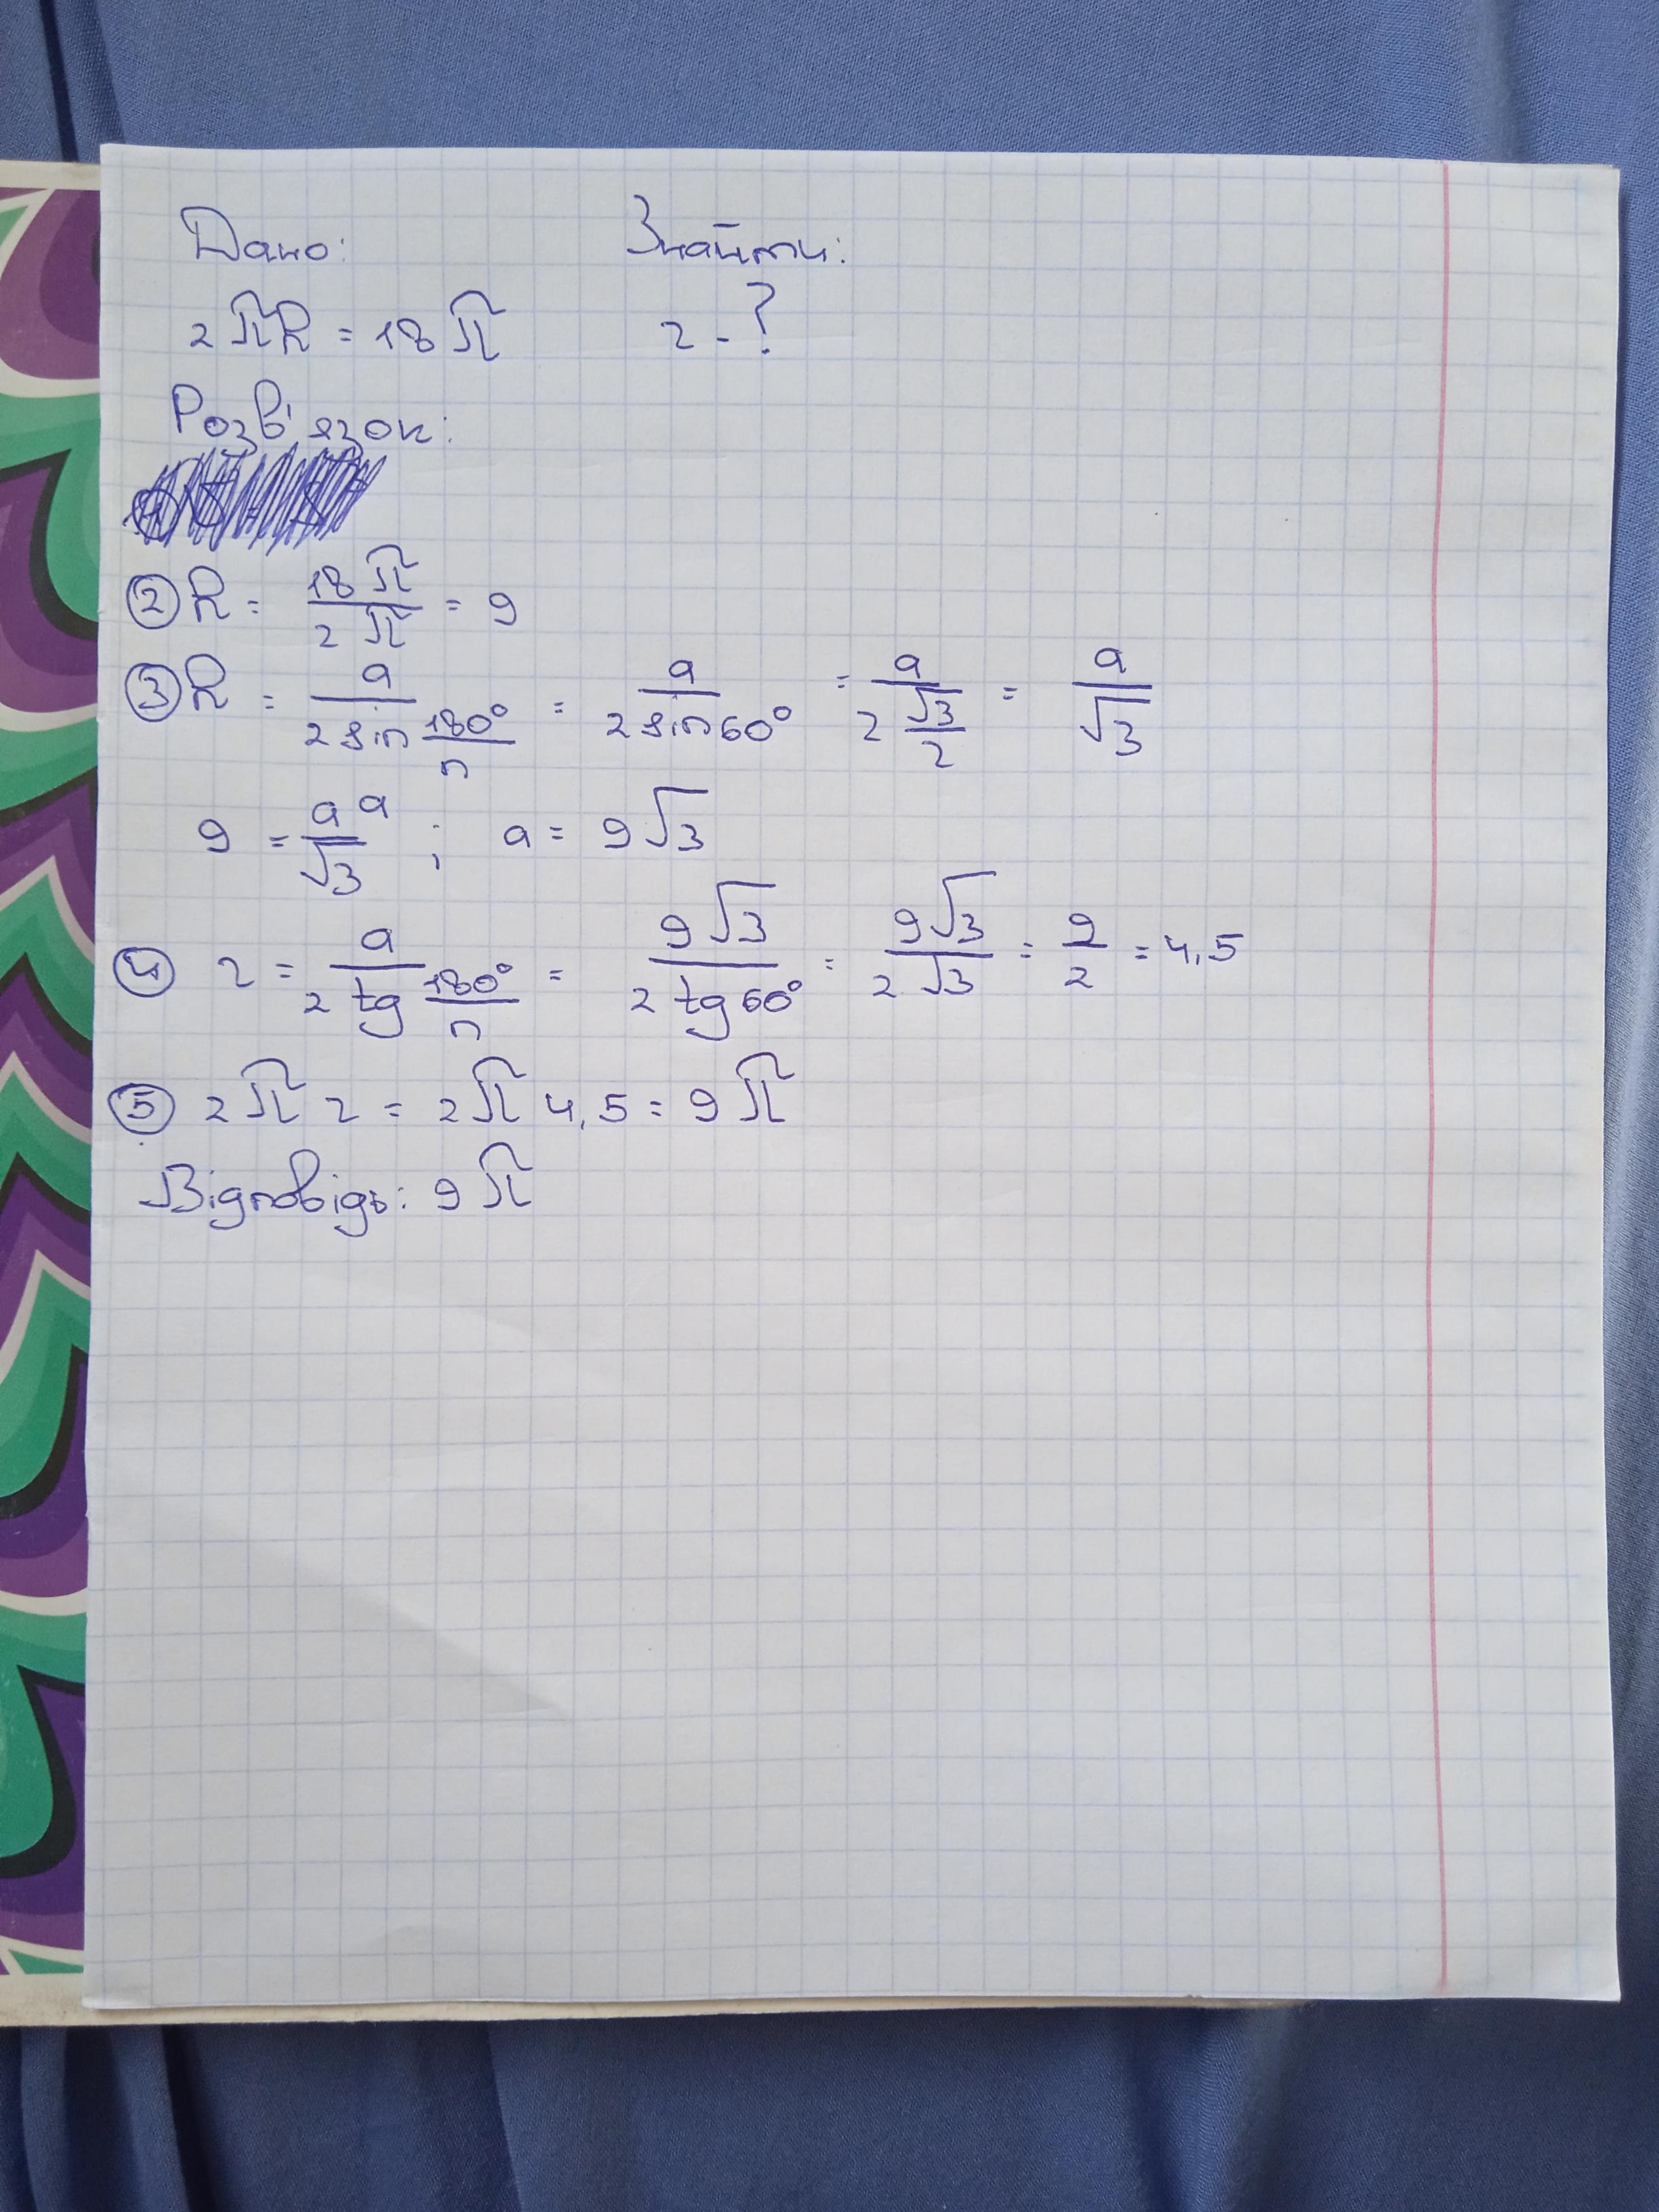 Дано: Знайти:
2πR = 18π r - ?
Розв'язок:
② R = 18π/2π = 9
③ R = a/(2 sin 180°/n) = a/(2 sin 60°) = a/(2 √3/2) = a/√3
9 = a/√3 a ; a = 9√3
④ r = a/(2 tg 180°/n) = 9√3/(2 tg 60°) = 9√3/(2√3) = 9/2 = 4,5
⑤ 2π r = 2π 4,5 = 9π
Відповідь: 9π